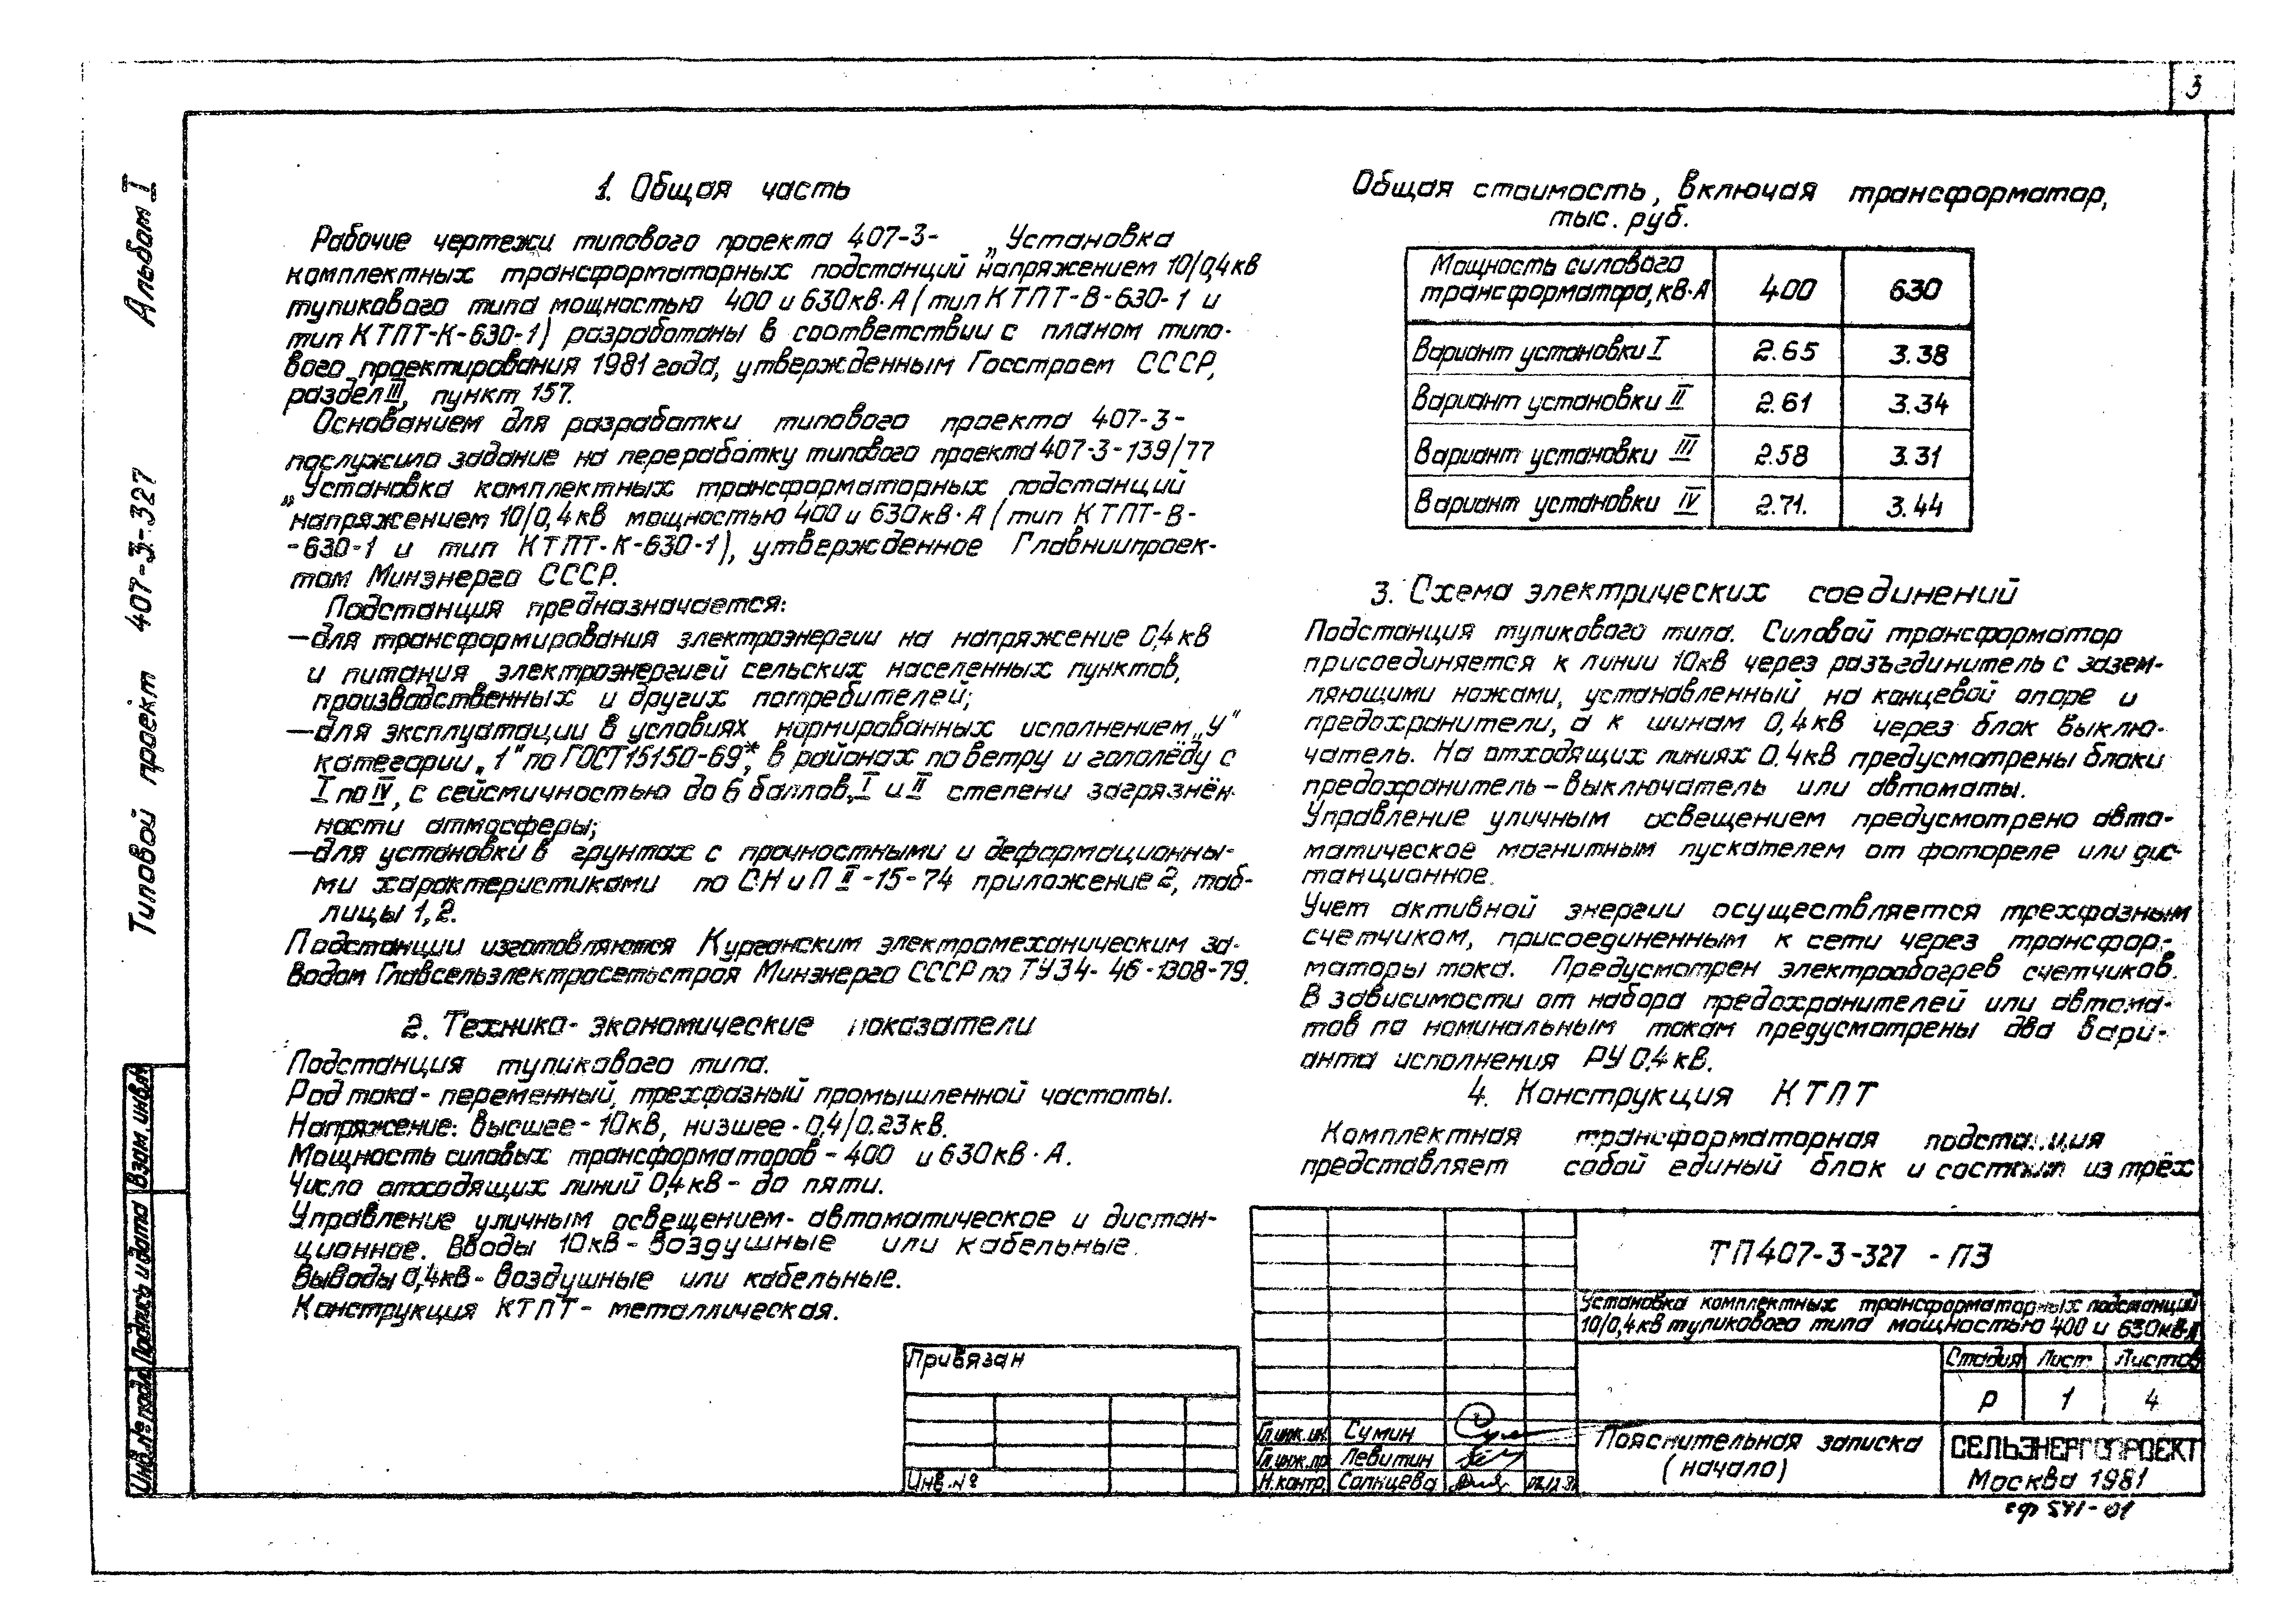 3
Альбом I
Типовой проект 407-3-327
1. Общая часть
Рабочие чертежи типового проекта 407-3- „Установка
комплектных трансформаторных подстанций напряжением 10/0,4кв
тупикового типа мощностью 400 и 630кв·А (тип КТПТ-В-630-1 и
тип КТПТ-К-630-1) разработаны в соответствии с планом типо-
вого проектирования 1981 года, утвержденным Госстроем СССР,
раздел III, пункт 157.
Основанием для разработки типового проекта 407-3-
послужило задание на переработку типового проекта 407-3-139/77
„Установка комплектных трансформаторных подстанций
напряжением 10/0,4кв мощностью 400 и 630кв·А (тип КТПТ-В-
-630-1 и тип КТПТ-К-630-1), утвержденное Главниипроек-
том Минэнерго СССР.
Подстанция предназначается:
—для трансформирования электроэнергии на напряжение 0,4кв
и питания электроэнергией сельских населенных пунктов,
производственных и других потребителей;
—для эксплуатации в условиях нормированных исполнением „У"
категории „1" по ГОСТ15150-69*, в районах по ветру и гололёду с
I по IV, с сейсмичностью до 6 баллов, I и II степени загрязнён-
ности атмосферы;
—для установки в грунтах с прочностными и деформационны-
ми характеристиками по СНиП II-15-74 приложение 2, таб-
лицы 1,2.
Подстанции изготовляются Курганским электромеханическим за-
водом Главсельэлектросетьстроя Минэнерго СССР по ТУ34-46-1308-79.
2. Технико-экономические показатели
Подстанция тупикового типа.
Род тока - переменный, трехфазный промышленной частоты.
Напряжение: высшее - 10кв, низшее - 0,4/0.23кв.
Мощность силовых трансформаторов - 400 и 630кв·А.
Число отходящих линий 0,4кв - до пяти.
Управление уличным освещением - автоматическое и дистан-
ционное. Вводы 10кв - воздушные или кабельные.
Выводы 0,4кв - воздушные или кабельные.
Конструкция КТПТ - металлическая.
Общая стоимость, включая трансформатор,
тыс. руб.
Мощность силового трансформатора, кв·А 400 630
Вариант установки I 2.65 3.38
Вариант установки II 2.61 3.34
Вариант установки III 2.58 3.31
Вариант установки IV 2.71. 3.44
3. Схема электрических соединений
Подстанция тупикового типа. Силовой трансформатор
присоединяется к линии 10кв через разъединитель с зазем-
ляющими ножами, установленный на концевой опоре и
предохранители, а к шинам 0,4кв через блок выклю-
чатель. На отходящих линиях 0.4кв предусмотрены блоки
предохранитель - выключатель или автоматы.
Управление уличным освещением предусмотрено авто-
матическое магнитным пускателем от фотореле или дис-
танционное.
Учет активной энергии осуществляется трехфазным
счетчиком, присоединенным к сети через трансфор-
маторы тока. Предусмотрен электрообогрев счетчиков.
В зависимости от набора предохранителей или автома-
тов по номинальным токам предусмотрены два вари-
анта исполнения РУ 0,4кв.
4. Конструкция КТПТ
Комплектная трансформаторная подстанция
представляет собой единый блок и состоит из трёх
ТП407-3-327 - ПЗ
Установка комплектных трансформаторных подстанций
10/0,4кв тупикового типа мощностью 400 и 630кв·А
Стадия Лист Листов
Р 1 4
Пояснительная записка
(начало)
СЕЛЬЭНЕРГОПРОЕКТ
Москва 1981
Гл.инж.ин. Сумин
Гл.инж.пр. Левитин
Н.контр. Солнцева
Привязан
Инв.№
Взам.инв.№
Подпись и дата
Инв.№ подл.
сф 541-01